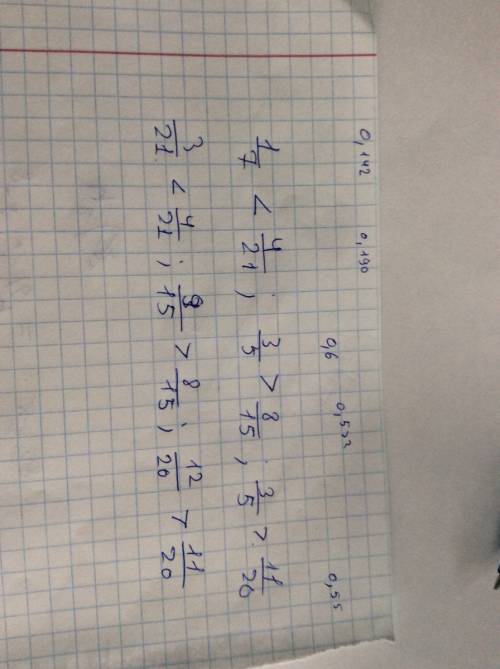 0,142 0,190 0,6 0,55
1/7 < 4/21 ; 3/5 > 8/15 ; 3/5 > 11/20
3/21 < 4/21 ; 9/15 > 8/15 ; 12/20 > 11/20